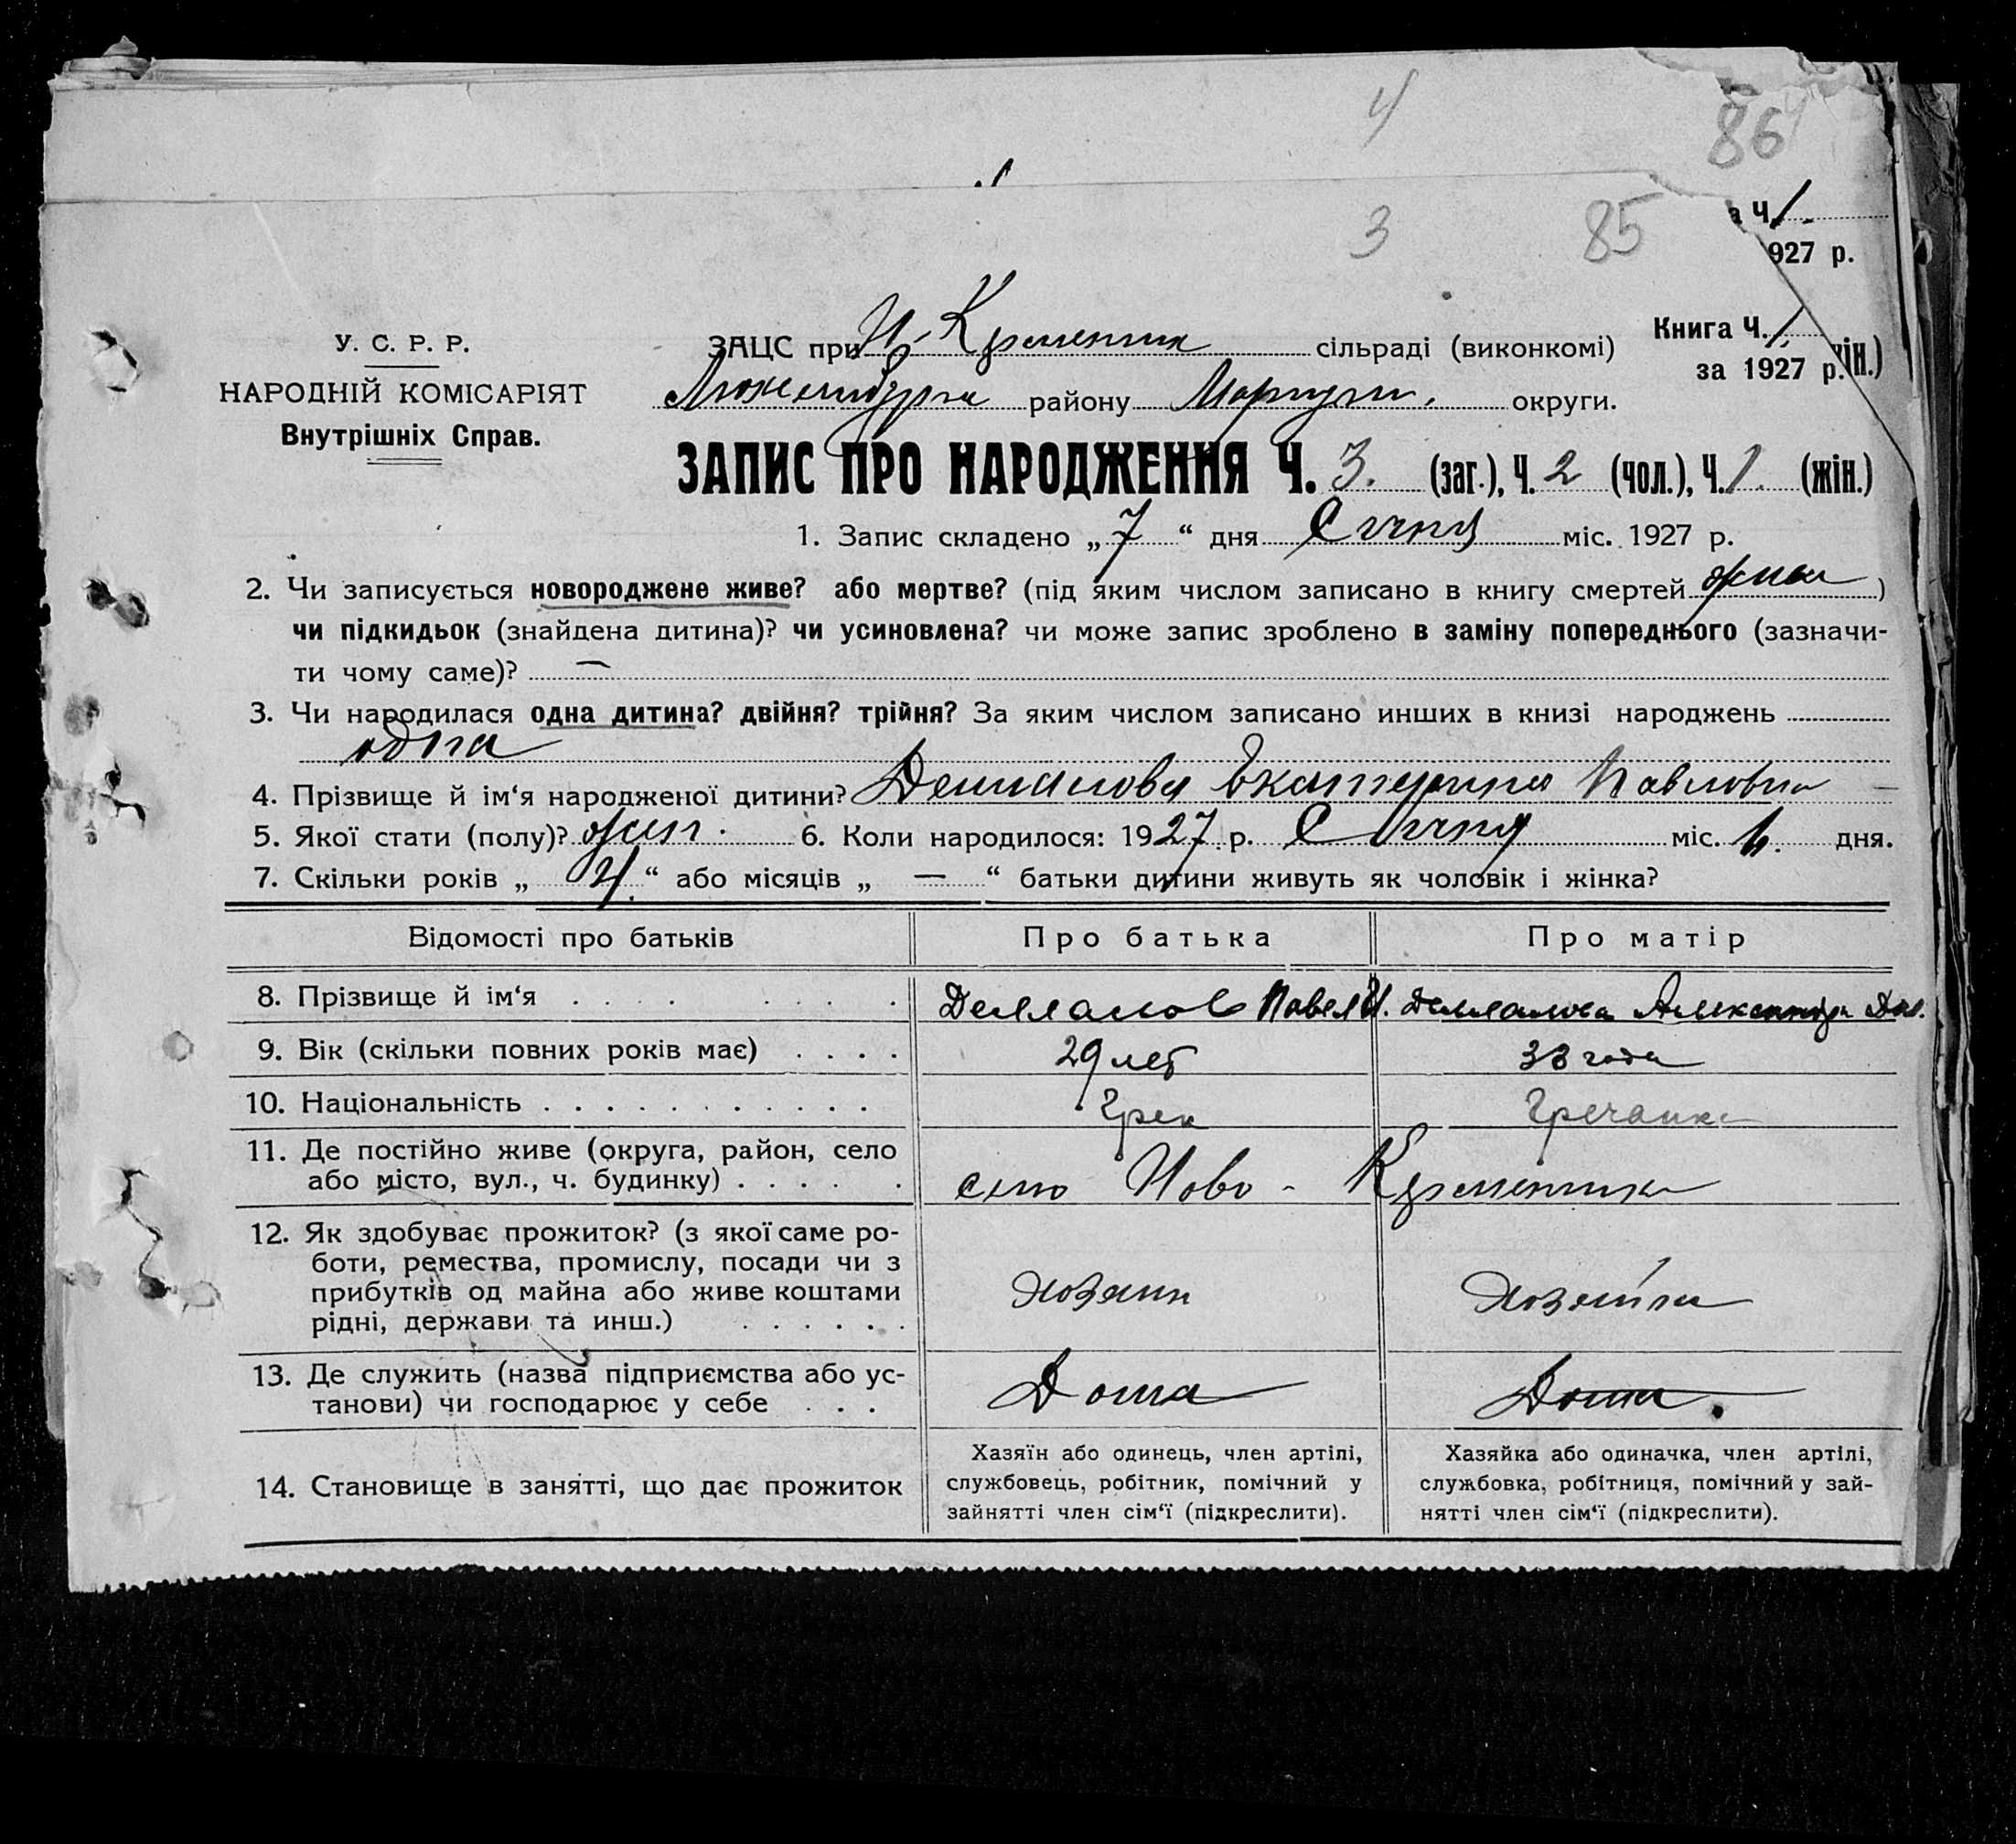 4
86
3
85
а Ч. 1
927 р.
У. С. Р. Р.
НАРОДНІЙ КОМІСАРІЯТ
Внутрішніх Справ.
ЗАЦС при Н-Кременчик сільраді (виконкомі)
Книга Ч. 1
за 1927 р.
жін.)
району Мариуп. округи.
ЗАПИС ПРО НАРОДЖЕННЯ Ч. 3. (заг.), Ч. 2 (чол.), Ч. 1. (жін.)
1. Запис складено „ 7 “ дня Січня міс. 1927 р.
2. Чи записується новороджене живе? або мертве? (під яким числом записано в книгу смертей )
чи підкидьок (знайдена дитина)? чи усиновлена? чи може запис зроблено в заміну попереднього (зазначи-
ти чому саме)? —
3. Чи народилася одна дитина? двійня? трійня? За яким числом записано инших в книзі народжень
одна
4. Прізвище й ім‘я народженої дитини? Екатерина Павловна
5. Якої стати (полу)? жін. 6. Коли народилося: 1927 р. Січня міс. 6. дня.
7. Скільки років „ 4. “ або місяців „ — “ батьки дитини живуть як чоловік і жінка?
Відомості про батьків Про батька Про матір
8. Прізвище й ім‘я Павел И. Александра
9. Вік (скільки повних років має) 29 лет 33 года
10. Національність Грек Гречанка
11. Де постійно живе (округа, район, село
або місто, вул., ч. будинку) село Ново-Кременчик
12. Як здобуває прожиток? (з якої саме ро-
боти, ремества, промислу, посади чи з
прибутків од майна або живе коштами
рідні, держави та инш.) хозяин хозяйка
13. Де служить (назва підприємства або ус-
танови) чи господарює у себе Дома Дома.
14. Становище в занятті, що дає прожиток
Хазяїн або одинець, член артілі,
службовець, робітник, помічний у
зайнятті член сім‘ї (підкреслити).
Хазяйка або одиначка, член артілі,
службовка, робітниця, помічний у зай-
нятті член сім‘ї (підкреслити).